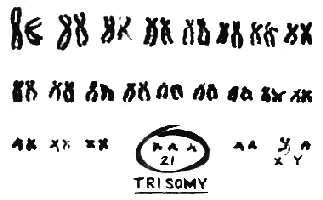 21
X Y
TRISOMY